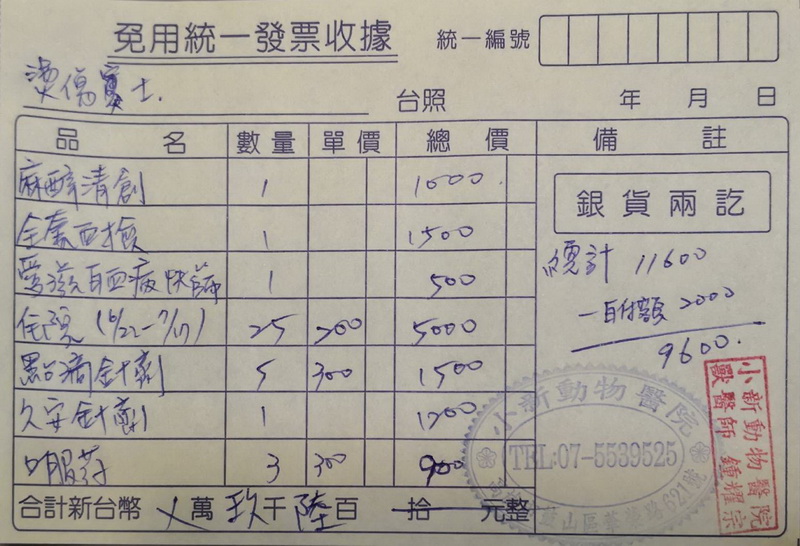 免用統一發票收據
統一編號
燙傷賓士.
台照 年 月 日
品名 數量 單價 總價 備註
麻醉清創 1 1000.
全套血檢 1 1500
愛滋白血病快篩 1 500
住院 (6/22-7/17) 25 200 5000
點滴針劑 5 300 1500
久安針劑 1 1200
口服药 3 300 900
合計新台幣 萬玖千陸百拾元整
銀貨兩訖
總計 11600
-自付額 2000
9600.
小新動物醫院
TEL:07-5539525
山區 路621號
小新動物醫院
獸醫師 鍾耀宗